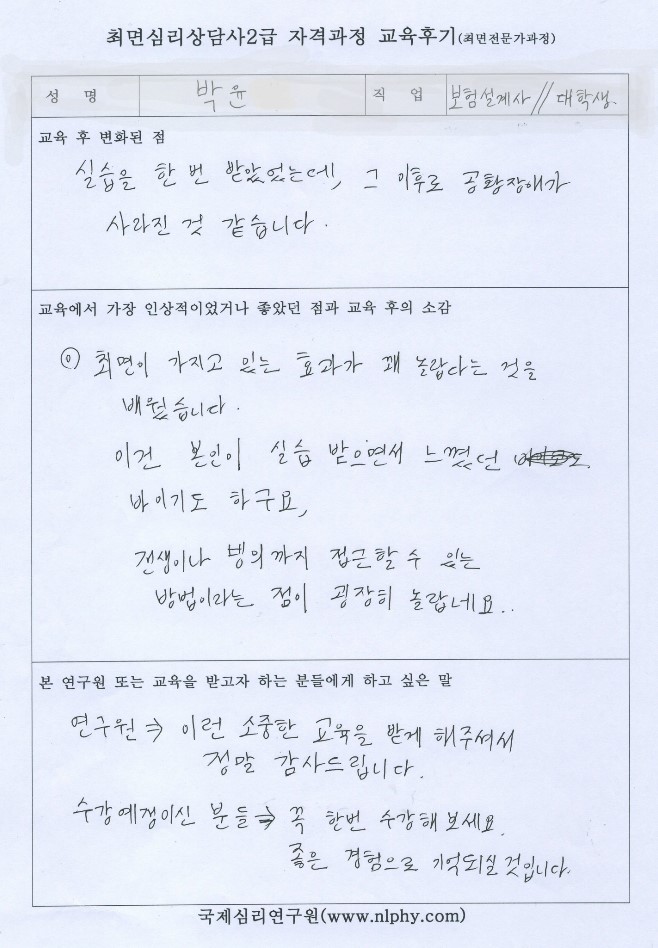 최면심리상담사2급 자격과정 교육후기(최면전문가과정)
성 명 박윤 직 업 보험설계사// 대학생.
교육 후 변화된 점
실습을 한 번 받았었는데, 그 이후로 공황장애가
사라진 것 같습니다.
교육에서 가장 인상적이었거나 좋았던 점과 교육 후의 소감
최면이 가지고 있는 효과가 꽤 놀랍다는 것을
배웠습니다.
이건 본인이 실습 받으면서 느꼈던
바이기도 하구요,
전생이나 빙의까지 접근할 수 있는
방법이라는 점이 굉장히 놀랍네요..
본 연구원 또는 교육을 받고자 하는 분들에게 하고 싶은 말
연구원 ⇒ 이런 소중한 교육을 받게 해주셔서
정말 감사드립니다.
수강예정이신 분들 ⇒ 꼭 한번 수강해 보세요.
좋은 경험으로 기억되실 것입니다.
국제심리연구원(www.nlphy.com)